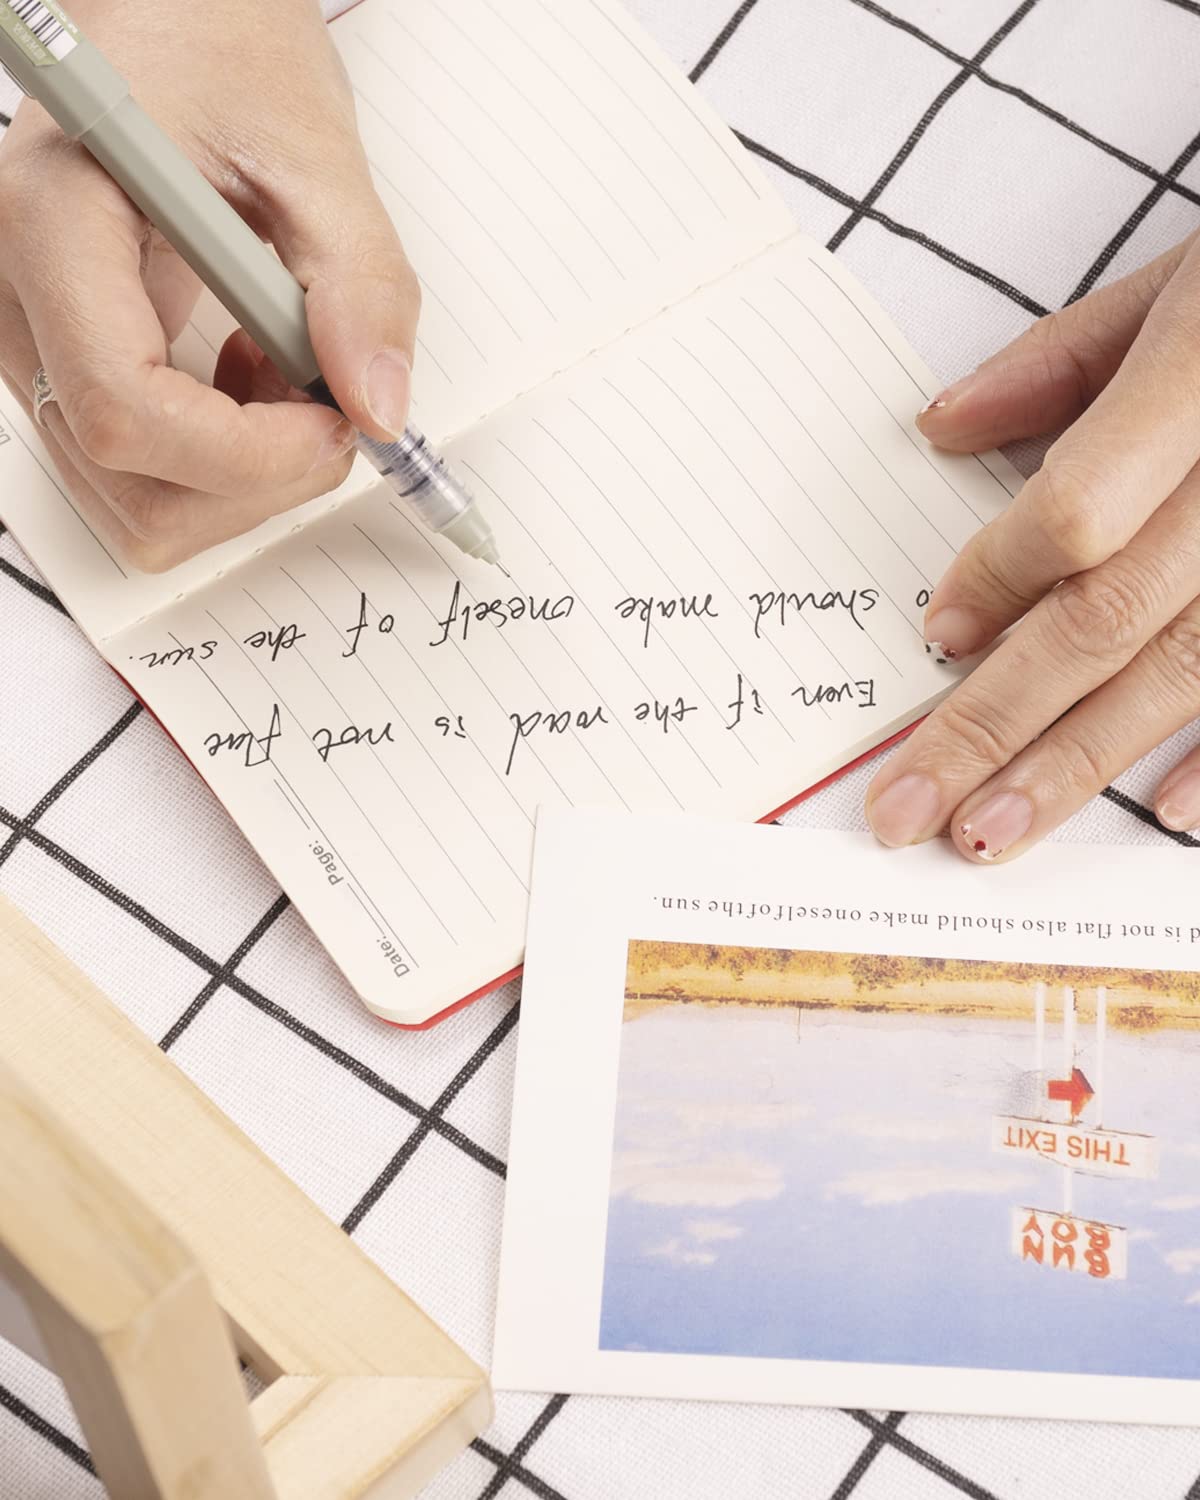 Even if the road is not flat
should make oneself of the sun.
Page:
Date:
is not flat also should make oneself of the sun.
BUN
BOY
THIS EXIT